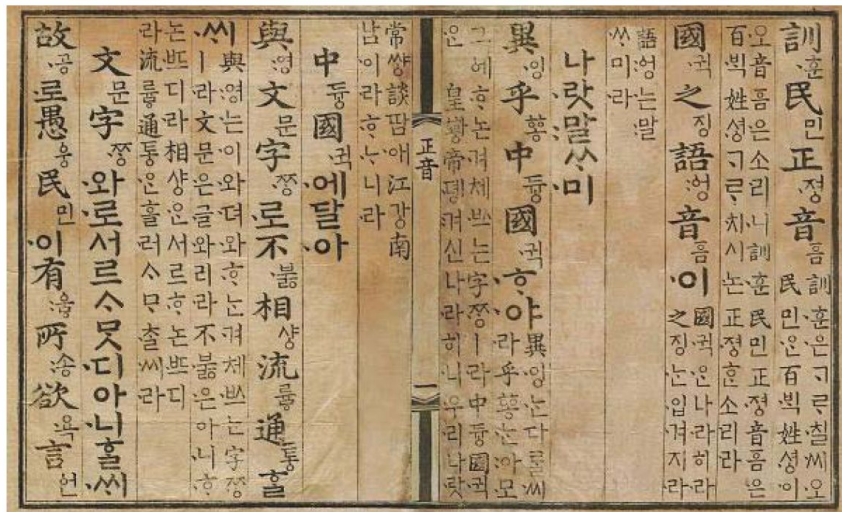 訓훈民민正졍音ᅙᅳᆷ訓훈은ᄀᆞᄅᆞ칠씨오
民민ᄋᆞᆫ百ᄇᆡᆨ姓셩이
오音ᅙᅳᆷ은소리니訓훈民민正졍音ᅙᅳᆷ은
百ᄇᆡᆨ姓셩ᄀᆞᄅᆞ치시논正졍ᄒᆞᆫ소리라
國귁之징語ᅌᅥᆼ音ᅙᅳᆷ이國귁ᄋᆞᆫ나라히라
之징ᄂᆞᆫ입겨지라
語ᅌᅥᆼ는말
ᄊᆞ미라
나랏말ᄊᆞ미
異잉乎ᅘᅩᆼ中듀ᇰ國귁ᄒᆞ야異잉ᄂᆞᆫ다ᄅᆞᆯ씨
라乎ᅘᅩᆼ는아모
그에ᄒᆞ논겨체ᄡᅳ는字ᄍᆞᆼㅣ라中듀ᇰ國귁
ᄋᆞᆫ皇ᅘᅪᆼ帝뎽겨신나라히니우리나랏
正音
一
常쌰ᇰ談땀애江가ᇰ南
남이라ᄒᆞᄂᆞ니라
中듀ᇰ國귁에달아
與영文문字ᄍᆞᆼ로不부ᇙ相샤ᇰ流류ᇢ通토ᇰᄒᆞᆯ
ᄊᆡ與영는이와뎌와ᄒᆞ논겨체ᄡᅳ는字ᄍᆞᆼ
ㅣ라文문은글와리라不부ᇙ은아니ᄒᆞ
논ᄠᅳ디라相샤ᇰᄋᆞᆫ서르ᄒᆞ논ᄠᅳ디
라流류ᇢ通토ᇰᄋᆞᆫ흘러ᄉᆞᄆᆞᄎᆞᆯ씨라
文문字ᄍᆞᆼ와로서르ᄉᆞᄆᆞᆺ디아니ᄒᆞᆯᄊᆡ
故공로愚ᅌᅮᆼ民민이有ᅌᅮᇢ所송欲욕言언